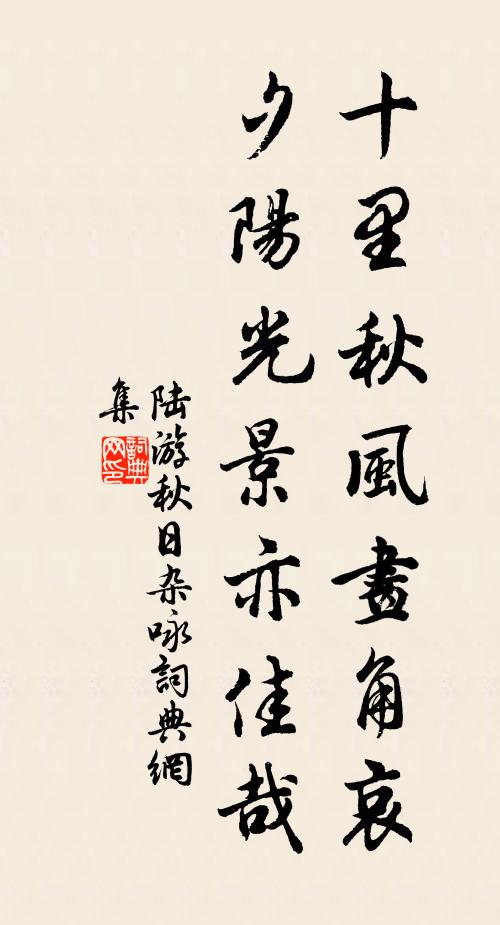 十里秋風畫角哀
夕陽光景亦佳哉
陸游秋日杂咏詞典網
集
詞典
网印